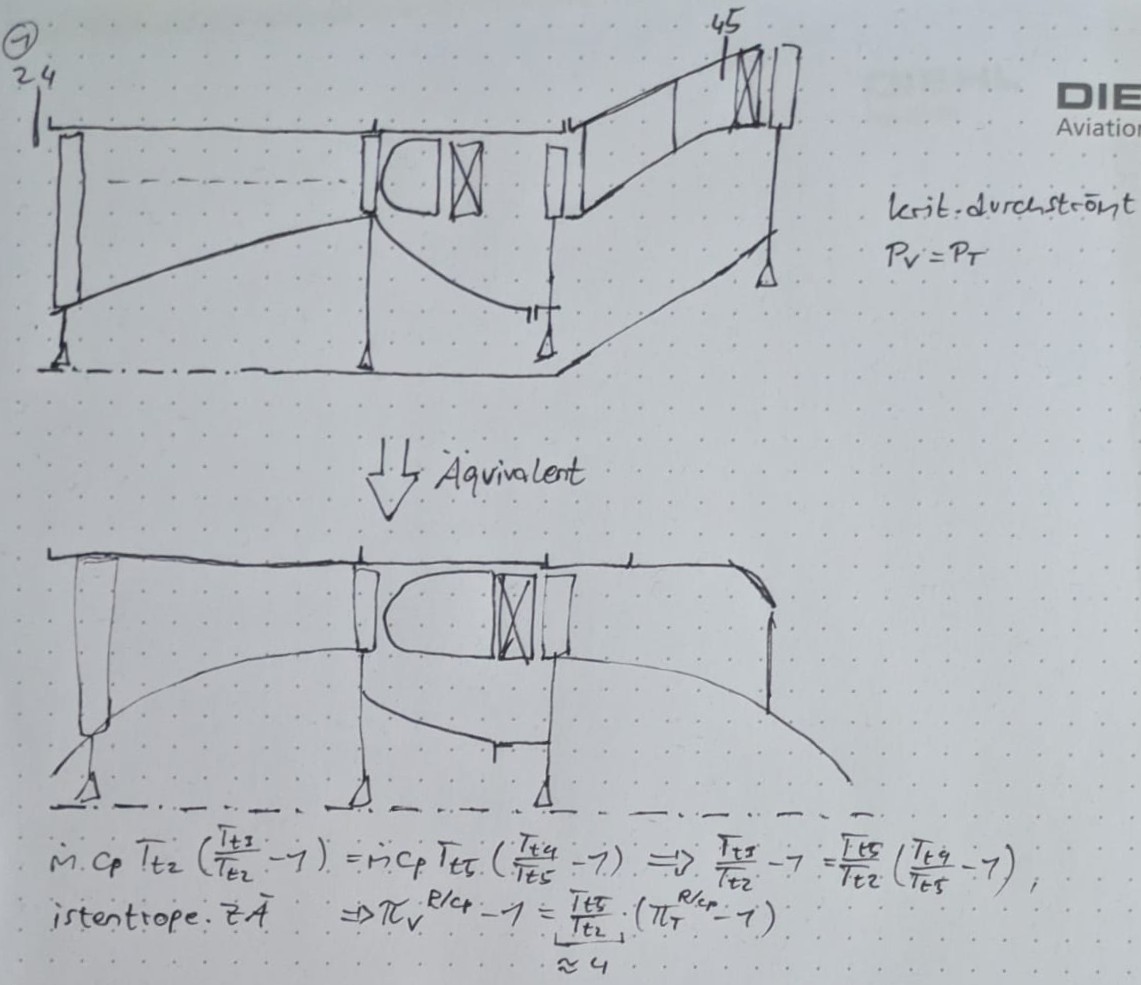 ①
24
45
DIE
Aviation
krit. durchströmt
P_V = P_T
Äqvivalent
ṁ cp T_t2 (T_t3/T_t2 - 1) = ṁ cp T_t5 (T_t4/T_t5 - 1) => T_t3/T_t2 - 1 = T_t5/T_t2 (T_t4/T_t5 - 1),
istentrope. ZÄ => π_V^R/cp - 1 = T_t5/T_t2 · (π_T^R/cp - 1)
≈ 4